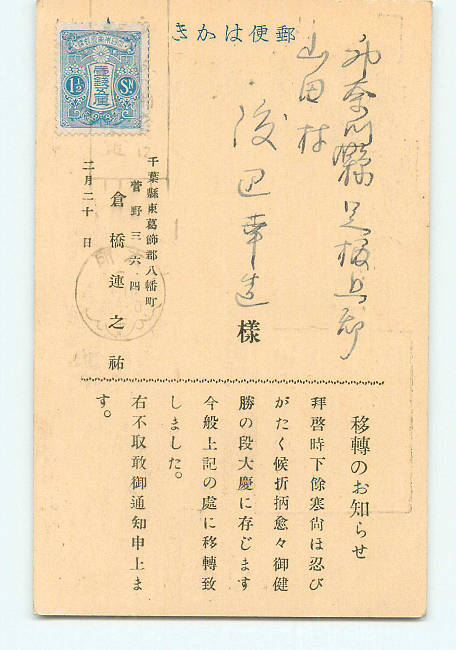 郵便はかき
壹錢五厘
1½ Sn
神奈川縣足柄上郡
山田村
渡辺幸造
様
千葉縣東葛飾郡八幡町
菅野三六四
倉橋連之祐
二月二十日
移轉のお知らせ
拜啓時下餘寒尙は忍び
がたく候折柄愈々御健
勝の段大慶に存じます
今般上記の處に移轉致
しました。
右不取敢御通知申上ま
す。